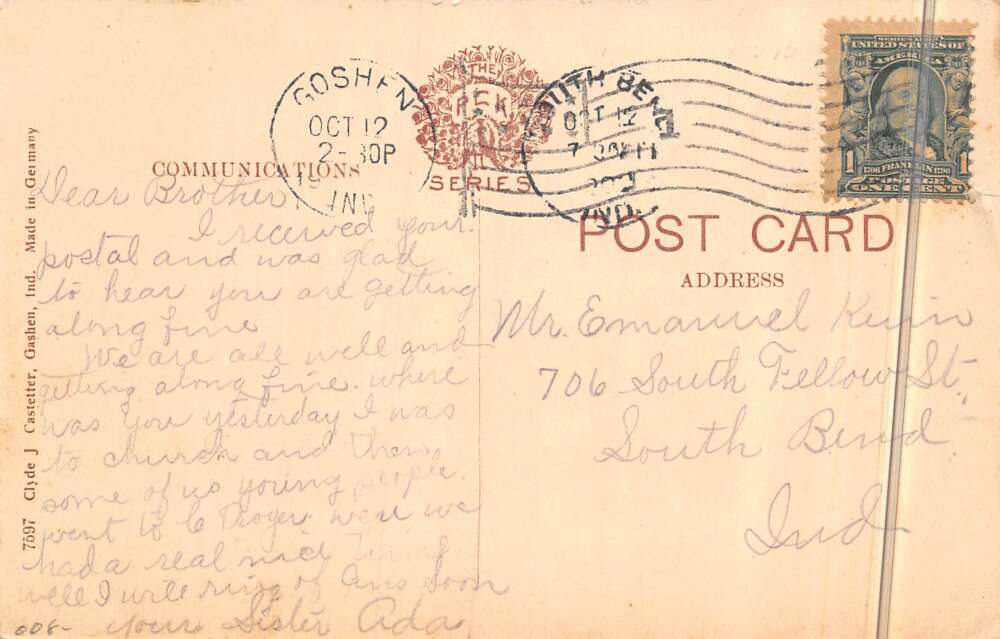 GOSHEN
OCT 12
2-30P
19
IND
THE
PCK
SERIES
SOUTH BEND
OCT 12
7
IND.
SERIES 1902
UNITED STATES OF
AMERICA
1 1
1706 FRANKLIN 1790
POSTAGE
ONE CENT
COMMUNICATIONS
POST CARD
ADDRESS
Dear Brother
I received your
postal and was glad
to hear you are getting
along fine
We are all well and
getting along fine. where
was you yesterday I was
to church and then
some of us young people
went to C Troyer were we
had a real nice time
well I will ring of Ans Soon
your Sister Ada
Mr. Emanuel
706 South Fellow St.
South Bend
Ind
7597 Clyde J Castetter, Gashen, Ind. Made in Germany
008-